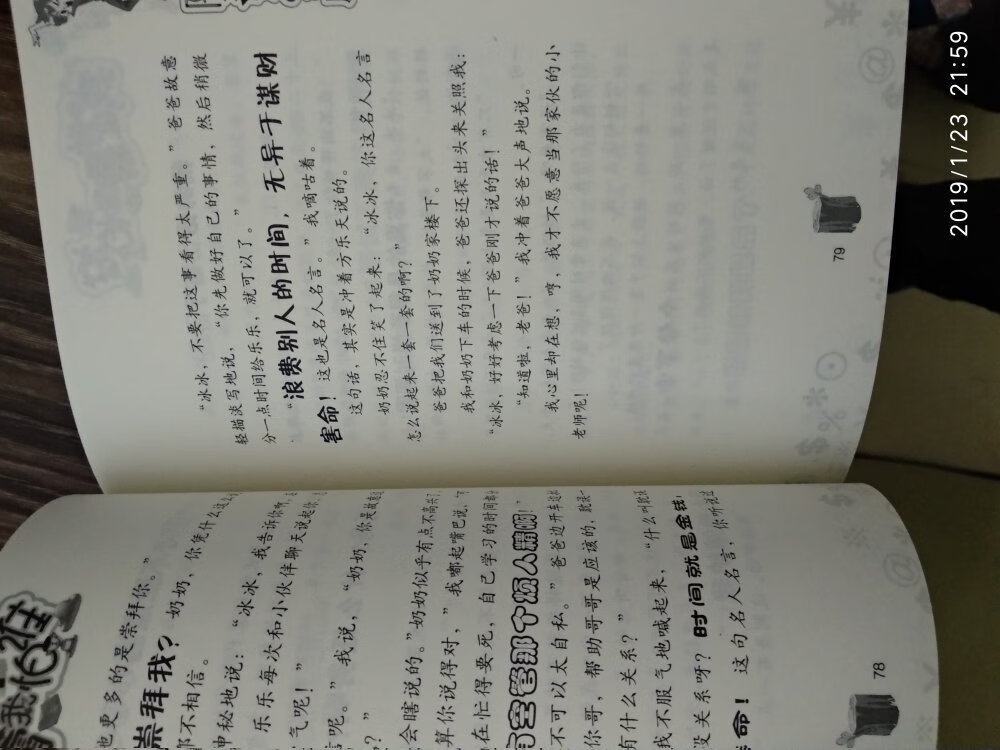 也更多的是崇拜你。”
崇拜我？ 奶奶，你凭什么这么
不相信。
神秘地说：“冰冰，我告诉你啊，
乐乐每次和小伙伴聊天说起你，
气呢！”
呢。”我说，“奶奶，你是故意
？”
会瞎说的。”奶奶似乎有点不高兴了
算你说得对，”我嘟起嘴巴说，
在忙得要死，自己学习的时间都
空管那个烦人精啊！
不可以太自私。”爸爸边开车边
你哥，帮助哥哥是应该的，
有什么关系？”
我不服气地喊起来，“什么叫
没关系呀？时间就是金钱
命！ 这句名人名言，你听
78
“冰冰，不要把这事看得太严重。”爸爸故意
轻描淡写地说，“你先做好自己的事情，然后稍微
分一点时间给乐乐，就可以了。”
“浪费别人的时间，无异于谋财
害命！这也是名人名言。”我嘀咕着。
这句话，其实是冲着方乐天说的。
奶奶忍不住笑了起来：“冰冰，你这名人名言
怎么说起来一套一套的啊？”
爸爸把我们送到了奶奶家楼下。
我和奶奶下车的时候，爸爸还探出头来关照我：
“冰冰，好好考虑一下爸爸刚才说的话！”
“知道啦，老爸！”我冲着爸爸大声地说。
我心里却在想，哼，我才不愿意当那家伙的小
老师呢！
79
2019/1/23 21:59